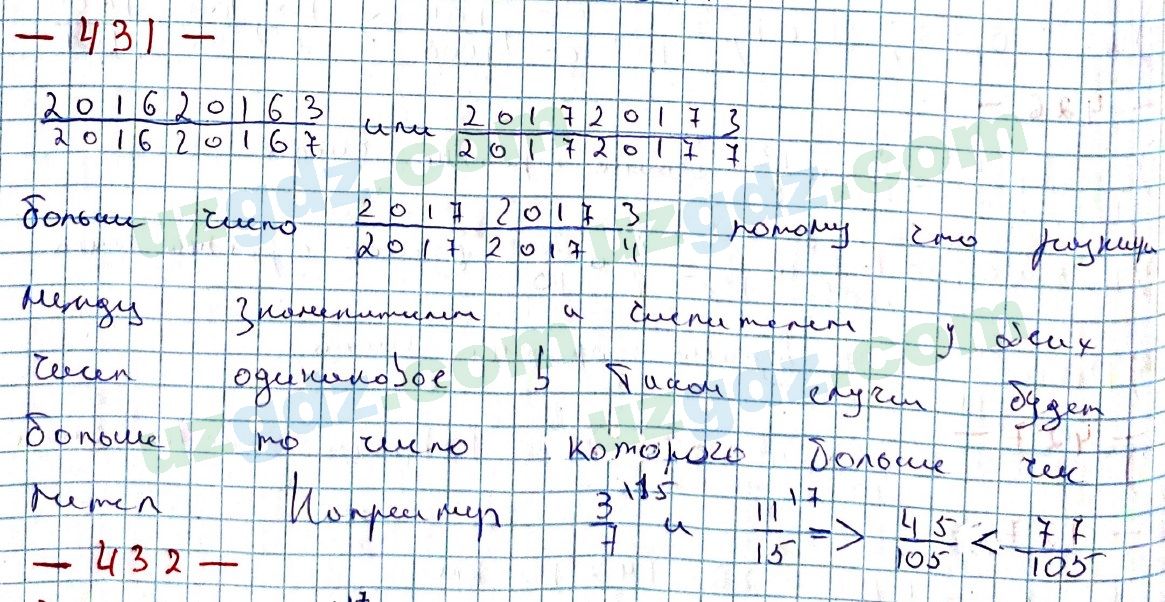 — 431 —
201620163/201620167 или 201720173/201720177
больше число 201720173/20172017 4 потому что разница
между знаменателем и числителем у обеих
чисел одинаковое В таком случаи будет
больше то число которого больше числ
ител Например 3/7 \15 и 11/15 \7 => 45/105 < 77/105
— 432 —
uzgdz.com
uzgdz.com
uzgdz.com
uzgdz.com